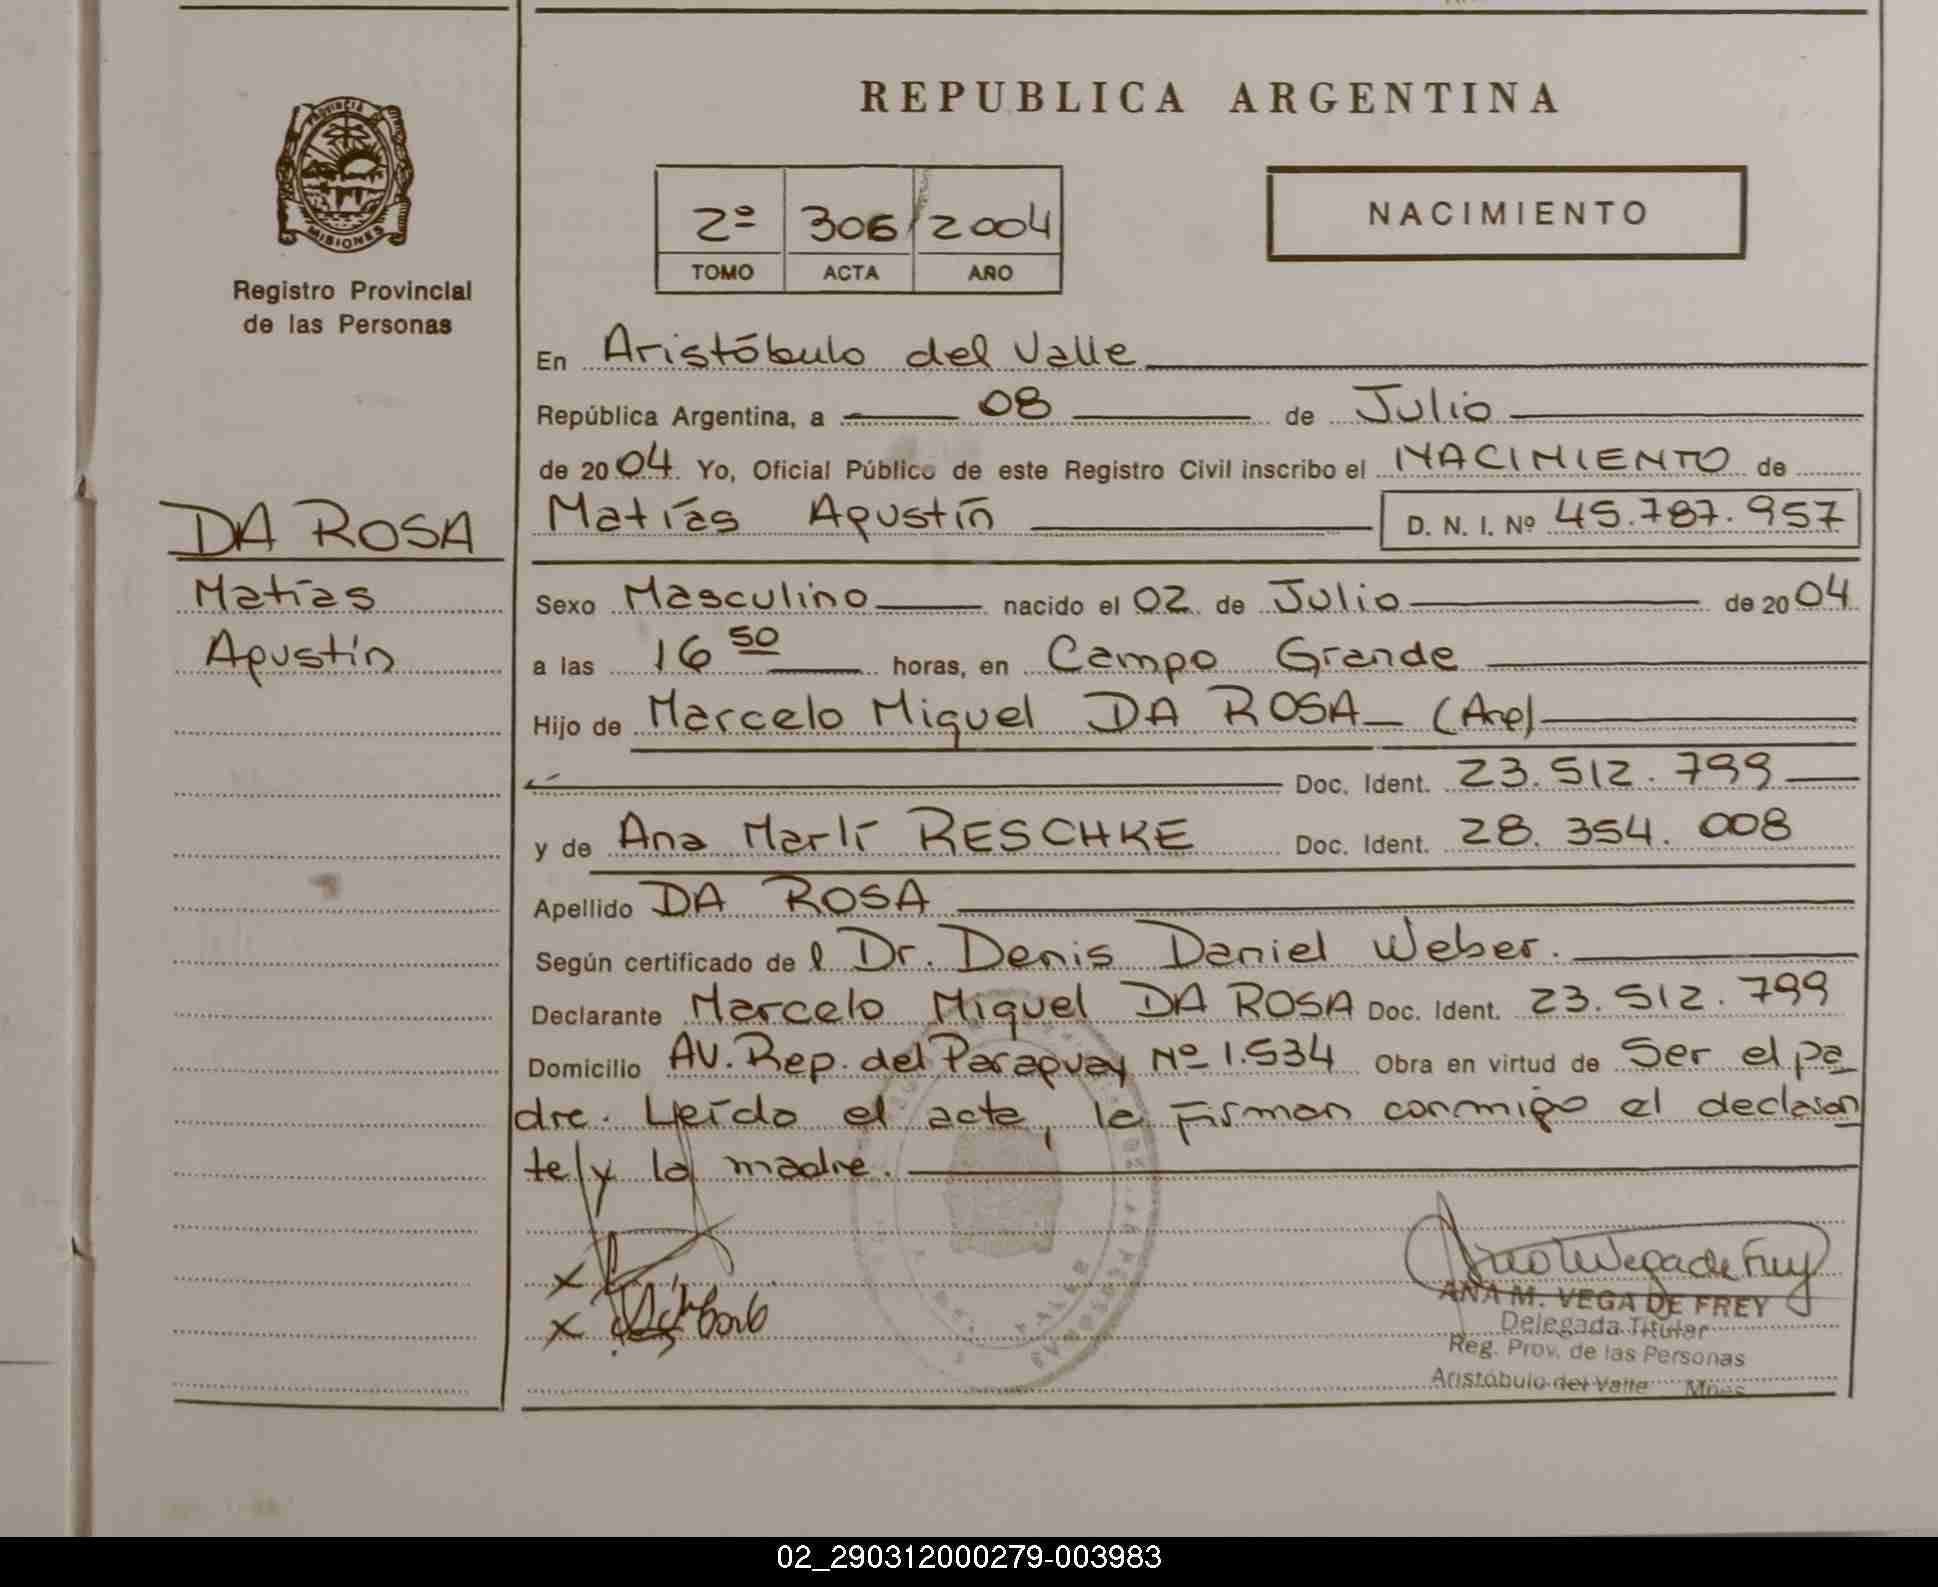 REPUBLICA ARGENTINA
PROVINCIA
MISIONES
Registro Provincial
de las Personas
2º 306 2004
TOMO ACTA AÑO
NACIMIENTO
En Aristóbulo del Valle
República Argentina, a 08 de Julio
de 2004 Yo, Oficial Público de este Registro Civil inscribo el NACIMIENTO de
Matías Agustín D. N. I. Nº 45.787.957
DA ROSA
Matías
Agustín
Sexo Masculino nacido el 02 de Julio de 2004
a las 16 50 horas, en Campo Grande
Hijo de Marcelo Miguel DA ROSA (Arg)
Doc. Ident. 23.512.799
y de Ana Marlí RESCHKE Doc. Ident. 28.354.008
Apellido DA ROSA
Según certificado del Dr. Denis Daniel Weber.
Declarante Marcelo Miguel DA ROSA Doc. Ident. 23.512.799
Domicilio AV. Rep. del Paraguay Nº 1.534 Obra en virtud de Ser el pa
dre. Leído el acta, la firman conmigo el declaran
te y la madre.
ANA M. VEGA DE FREY
Delegada Titular
Reg. Prov. de las Personas
Aristóbulo del Valle Mnes
02_290312000279-003983